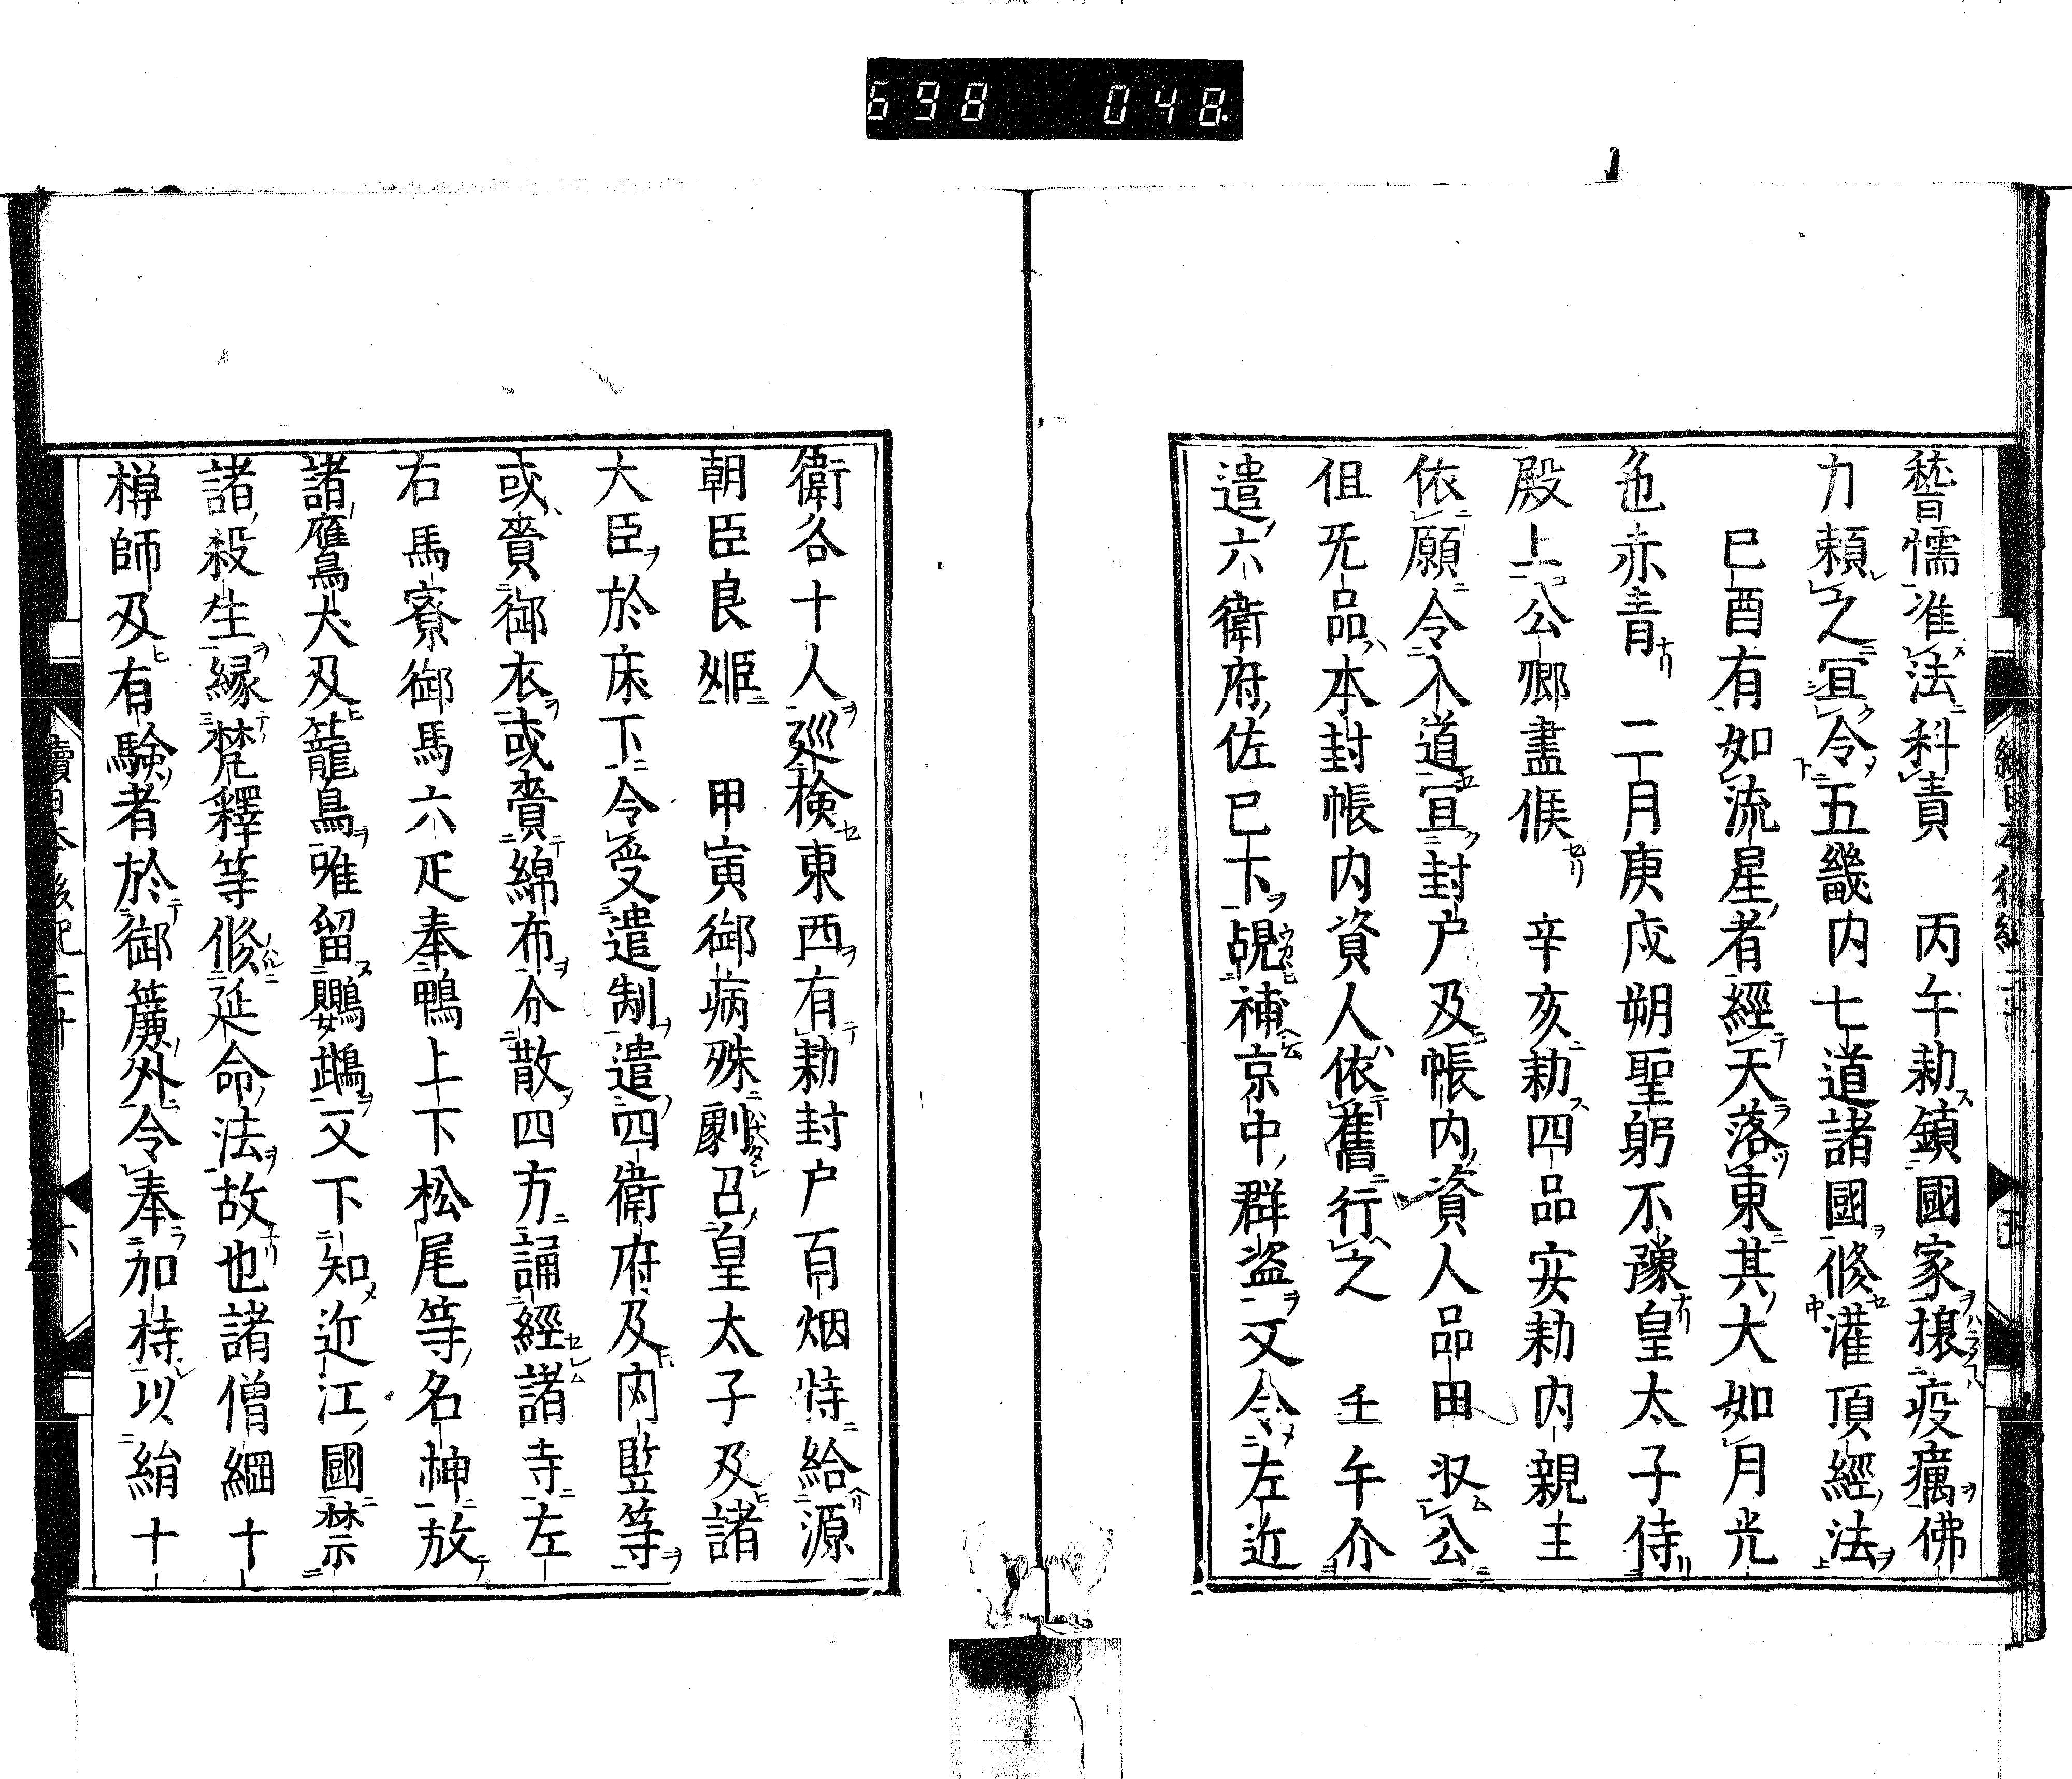 698 048
嵆懦准法科責 丙午勅鎮國家攘疫癘佛
力頼之冝令五畿内七道諸國修灌頂經法
已酉有如流星者經天落東其大如月光
色赤青 二月庚戌朔聖躬不豫皇太子侍
殿上公卿盡候 辛亥勅四品安勅内親王
依願令入道冝封戸及帳内資人品田収公
但无品本封帳内資人依舊行之 壬午分
遣六衛府佐已下覘補京中群盗又令左近
衛各十人廵検東西有勅封戸百烟特給源
朝臣良姬 甲寅御病殊劇召皇太子及諸
大臣於床下令受遺制遣四衛府及内竪等
或賷御衣或賷綿布分散四方誦經諸寺左
右馬寮御馬六疋奉鴨上下松尾等名神放
諸鷹犬及籠鳥唯留鸚鵡又下知近江國禁
諸殺生縁梵釋等修延命法故也諸僧綱十
禅師及有験者於御簾外令奉加持以絹十
續日本後紀二十 六